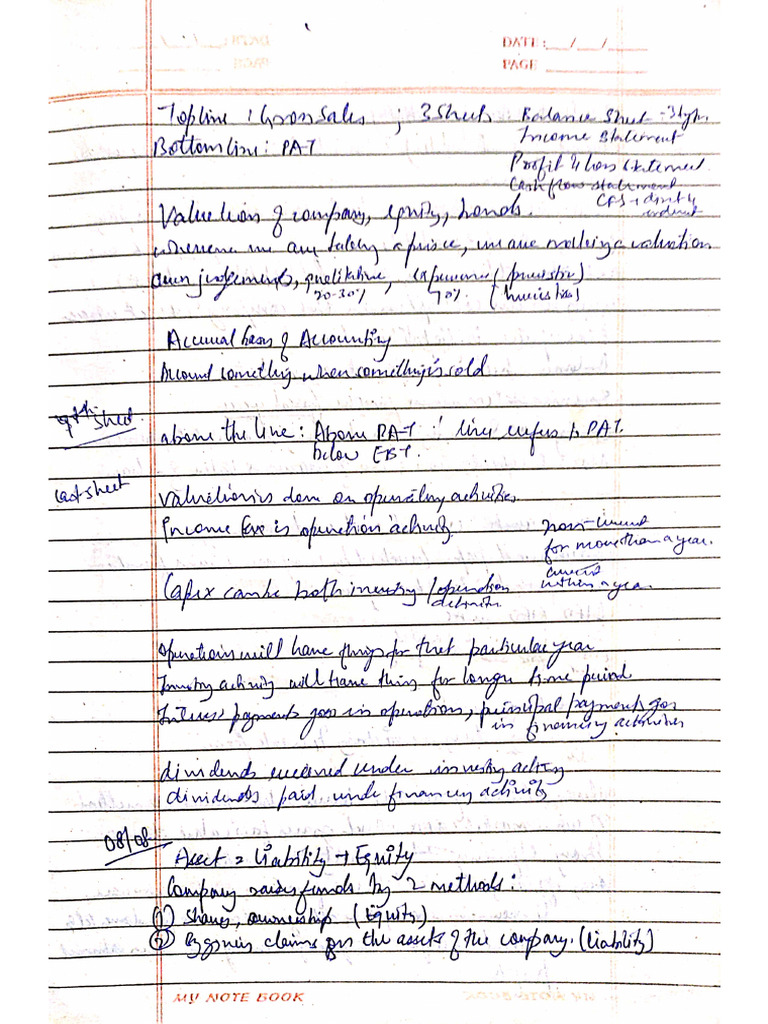 DATE: __/__/____
PAGE ________
Topline : Gross Sales ; 3 Sheets Balance Sheet
Income Statement
Bottomline: PAT
Profit & loss statement
Cash flow statement
CFS → direct & indirect
Valuation of company, equity, bonds.
whenever we are taking a price, we are making a valuation
own judgements, qualitative, experience
20-30% 70%
Accrual basis of Accounting
Record something when something is sold
Sheet
above the line: Above PAT line refers to PAT.
below EBT.
Last sheet
Valuation is done on operating activities.
Income tax is operation activity
non-current
for more than a year.
current
within a year.
Capex can be both investing / operation
Operations will have things for that particular year
Investing activity will have thing for longer time period.
Interest payments goes in operations, principal payments goes
in financing activities
dividends received under investing activity
dividends paid under financing activity
08/08
Asset = Liability + Equity
Company raises funds by 2 methods:
(1) Shares, ownership (Equity)
(2) By giving claims on the assets of the company. (Liability)
MY NOTE BOOK